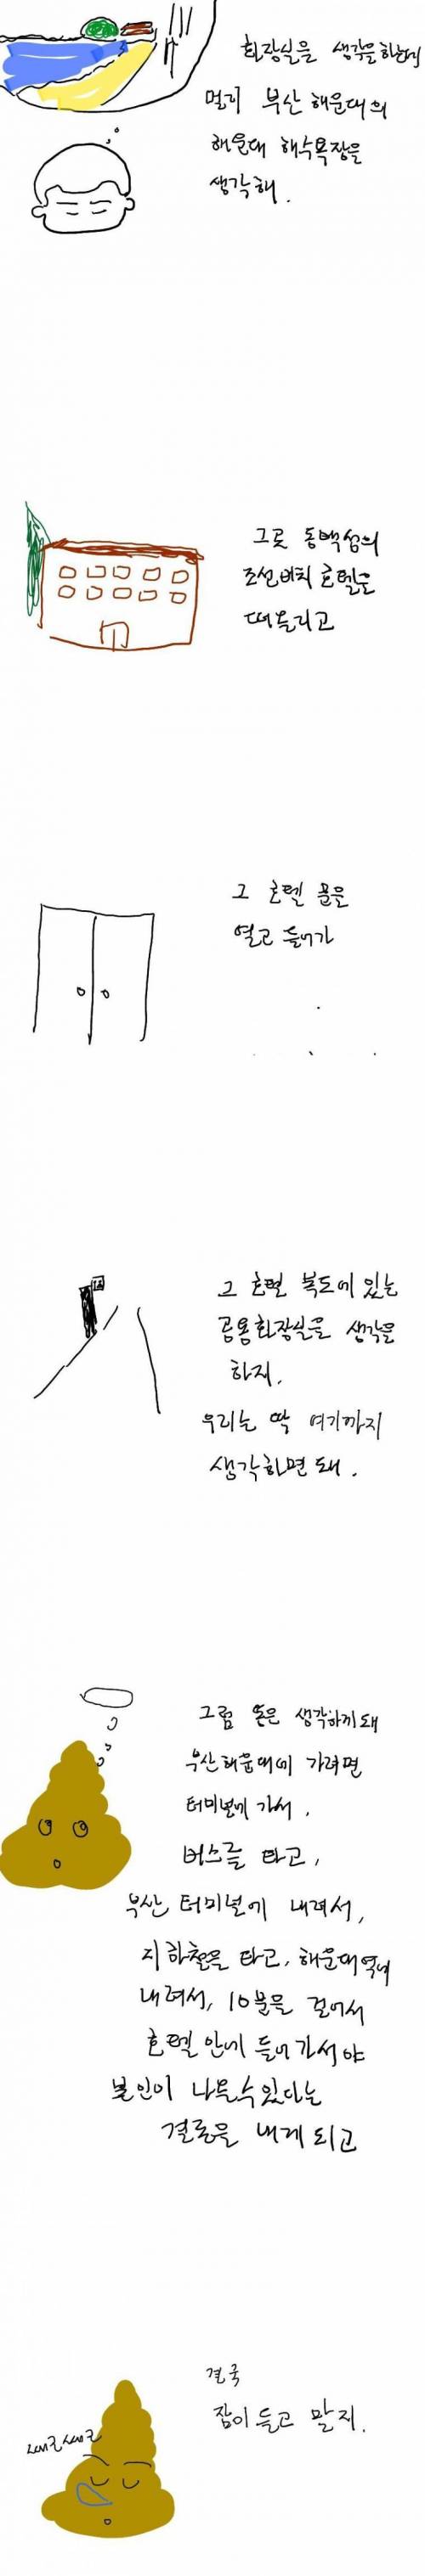 화장실을 생각을 하는데
멀리 부산 해운대의
해운대 해수욕장을
생각해.
그곳 동백섬의
조선비치 호텔을
떠올리고
그 호텔 문을
열고 들어가
그 호텔 복도에 있는
공용화장실을 생각을
하지.
우리는 딱 여기까지
생각하면 돼.
그럼 똥은 생각하게돼
부산해운대에 가려면
터미널에 가서,
버스를 타고,
부산 터미널에 내려서,
지하철을 타고, 해운대역에
내려서, 10분을 걸어서
호텔 안에 들어가서야
본인이 나올수있다는
결론을 내게 되고
결국
잠이 들고 말지.
쌔근쌔근